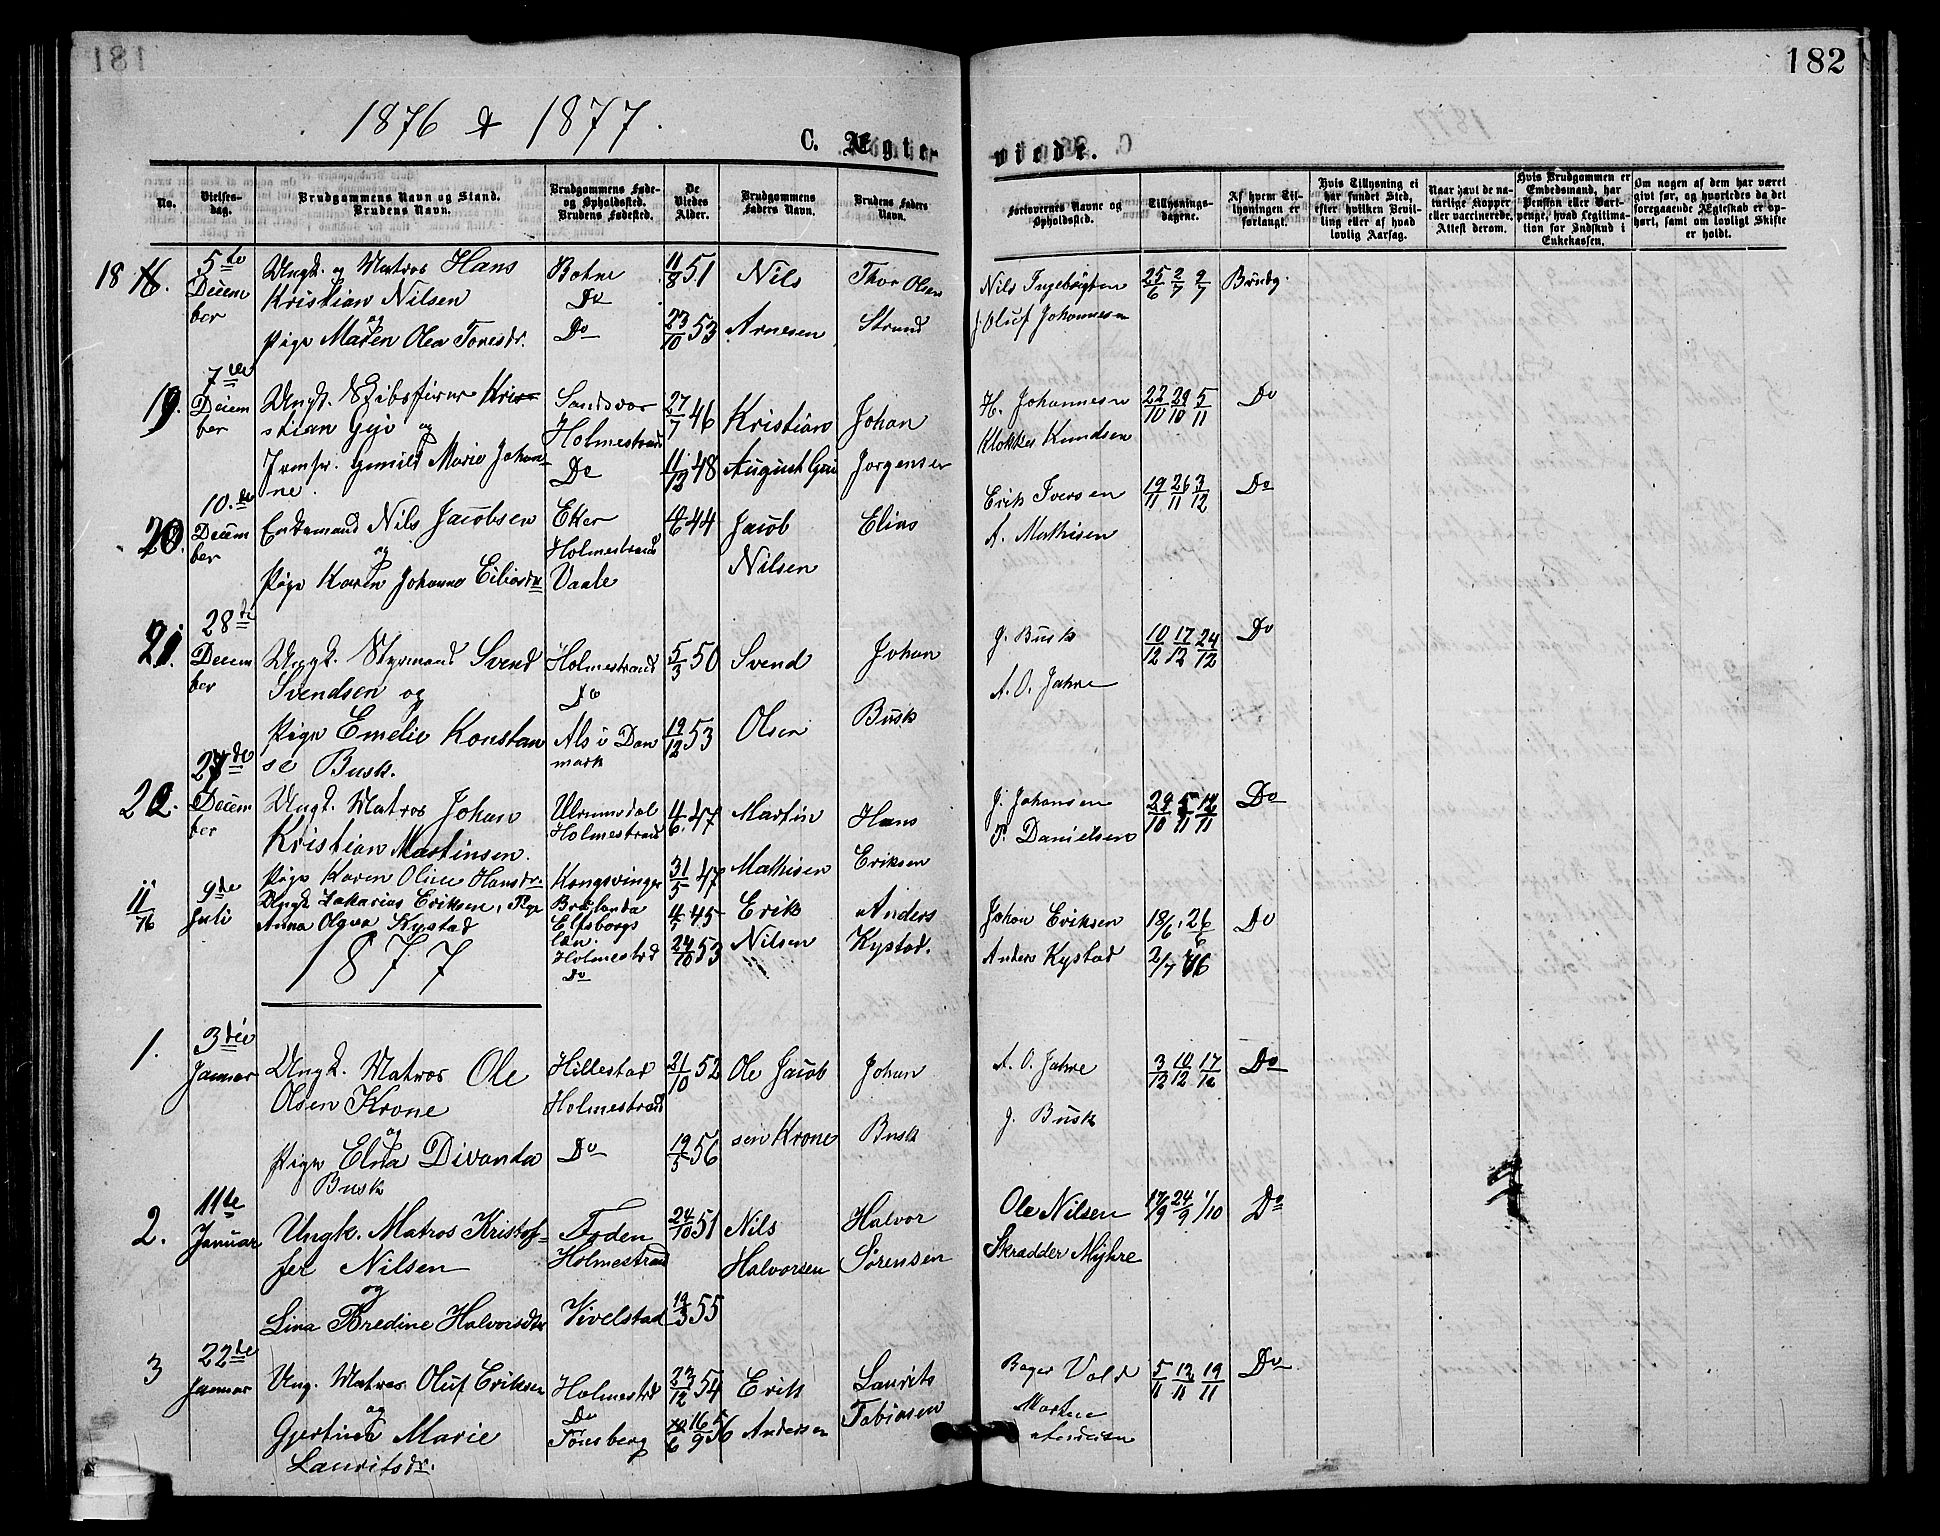 181
182
1876 & 1877.
C. Ægte-
viede.
No.
Vielses-
dag.
Brudgommens Navn og Stand.
Brudens Navn.
Brudgommens Føde-
og Opholdssted.
Brudens Fødested.
De
Viedes
Alder.
Brudgommens
Faders Navn.
Brudens Faders
Navn.
Forlovernes Navne og
Opholdssted.
Tillysnings-
dagene.
Af hvem Til-
lysningen er
forlangt.
Hvis Tillysning ei
har fundet Sted,
efter hvilken Bevil-
ling eller af hvad
lovlig Aarsag.
Naar havt de na-
turlige Kopper
eller vaccinerede,
Attest derom.
Hvis Brudgommen er
Embedsmand, har
Pension eller Vart-
penge, hvad Legitima-
tion for Indskud i
Enkekassen.
Om nogen af dem har været
gift før, og hvorledes da det
foregaaende Ægteskab er op-
hørt, samt om lovligt Skifte
er holdt.
18.
5te
Decem
ber
Ungk. og Matros Hans
Kristian Nilsen
og
Pige Maren Olea Toresdr.
Botne
Do
Do
11/8 51
23/10 53
Nils
Arnesen
Thor Olsen
Strand
Nils Ingebrigtsen
J. Oluf Johannesen
25/6 2/7 9/7
Brudg.
19.
7de
Decem
ber
Ungk. Skibsfører Kri-
stian
og
Jomfr. Marie Johan-
ne.
Holmestrand
Do
27/7 46
11/12 48
Kristian
August
Johan
Jorgensen
H. Johannesen
Klokker Knudsen
22/10 29/10 5/11
Do
20.
10.de
Decem
ber
Enkemand Nils Jacobsen
og
Pige Karen Johanne
Eker
Holmestrand
Vaale
44
Jacob
Nilsen
Elias
Erik Iversen
A. Mathisen
19/11 26/11 3/12
Do
21.
28de
Decem
ber
Ungk. Styrmand Svend
Svendsen og
Pige Emelie Konstan
se Busk.
Holmestrand
Do
Als i Dan
mark
5/3 50
19/12 53
Svend
Olsen
Johan
Busk
J. Busk
A. O. Jahre
10/12 17/12 24/12
Do
22.
27de
Decem
ber
Ungk. Matros Johan
Kristian Martinsen.
Pige Karen Oline Hansdr.
Holmestrand
Kongsvinger
4/6 47
31/5 47
Martin
Mathisen
Hans
Eriksen
J. Johansen
P. Danielsen
29/10 5/11 12/11
Do
11/76
9de
Juli
Ungk Zakarias Eriksen, Pige
Anna Olava Kystad
Elfsborgs
län.
Holmestrd
Do
45
24/10 53
Erik
Nilsen
Anders
Kystad.
Johan Eriksen
Anders Kystad
18/6, 26/6
2/7 76
Do
1877
1.
3die
Januar
Ungk. Matros Ole
Olsen Krone
og
Pige Elna Divanda
Busk
Hillestad
Holmestrand
Do
21/10 52
19/5 56
Ole Jacob
sen Krone
Johan
Busk
A. O. Jahre
J. Busk
3/12 10/12 17/12
Do
2.
11te
Januar
Ungk. Matros Kristof-
fer Nilsen
og
Lina Bredine Halvorsdtr
Foden
Holmestrand
Vivelstad
24/10 51
19/3 55
Nils
Halvorsen
Halvor
Sørensen
Ole Nilsen
Skrædder Myhre
17/9 24/9 1/10
Do
3
22de
Januar
Ung. Matros Oluf Eriksen
og
Gjertine Marie
Lauritsdr.
Holmestrd
Do
Tønsberg
23/12 54
16/9 56
Erik
Andersen
Laurits
Tobiasen
Bager Vold
5/11 12/11 19/11
Do